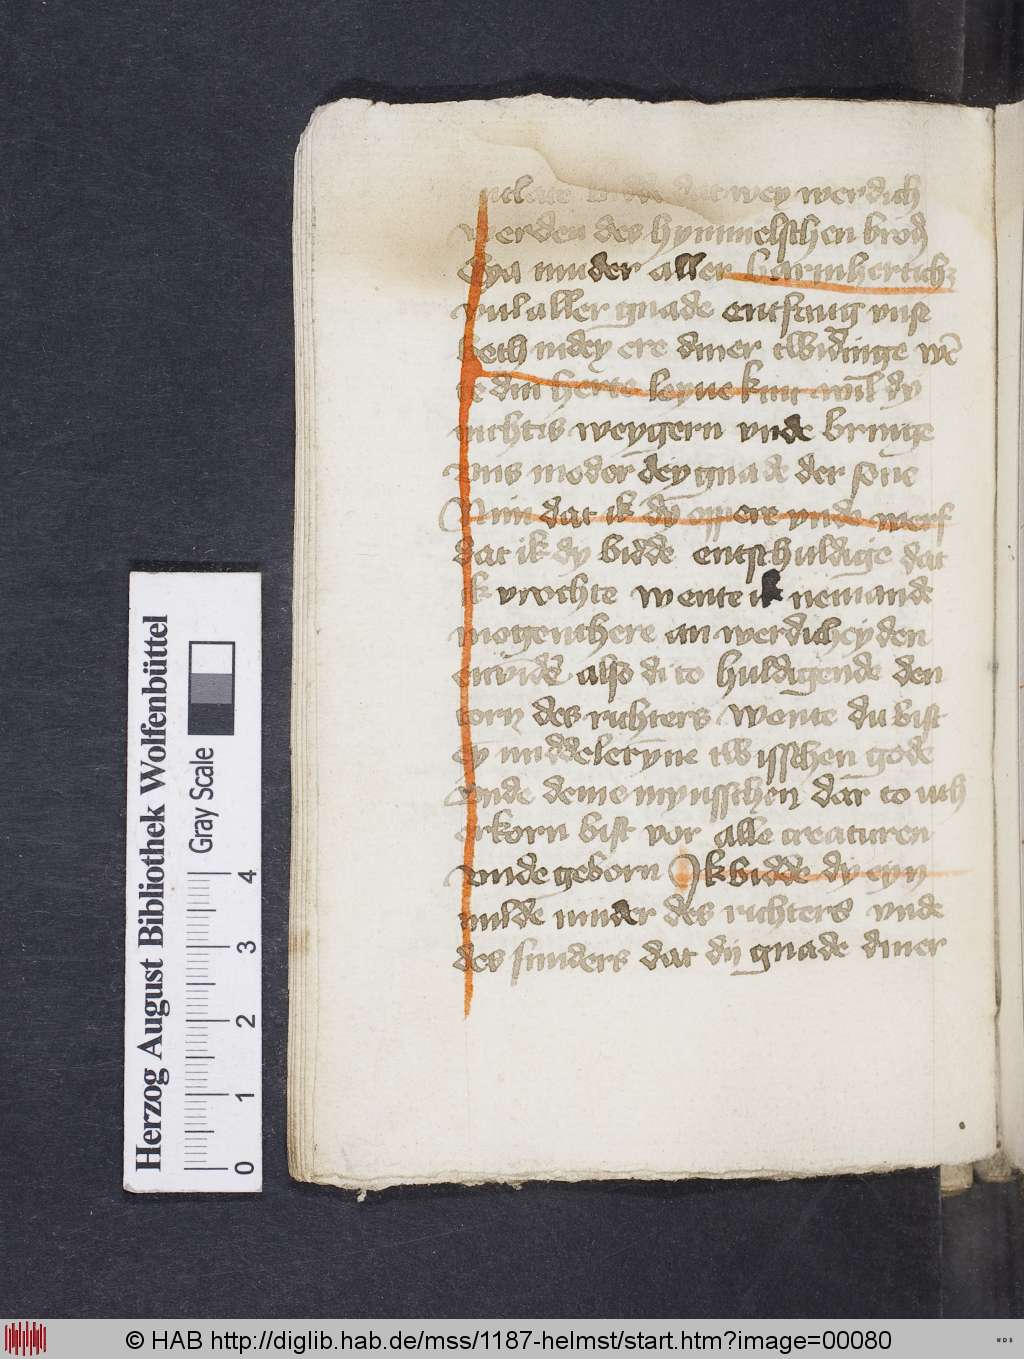 dat wey werdich
werden des hymmelschen brod
Eya muder aller barmherticht
vul aller gnade entfang vnse
beth in dey ere diner twidinge wē
te din herte leyue kint wil dy
nichtis weygern vnde bringe
vns moder dey gnade der sone
Nim dat ik dy oppere vnde werf
dat ik dy bidde entschuldige dat
ik vrochte wente ik nemande
mogenthere an werdicheyden
en vīde also di to huldigende den
torn des richters wente du bist
ey middelerÿne twisschen gode
vnde deme mynsschen dar to uth
erkorn bist vor alle creaturen
vnde geborn Ik bidde dy eyn
milde muder des richters vnde
des sunders dat dÿ gnade diner
Herzog August Bibliothek Wolfenbüttel
Gray Scale
0 1 2 3 4
© HAB http://diglib.hab.de/mss/1187-helmst/start.htm?image=00080